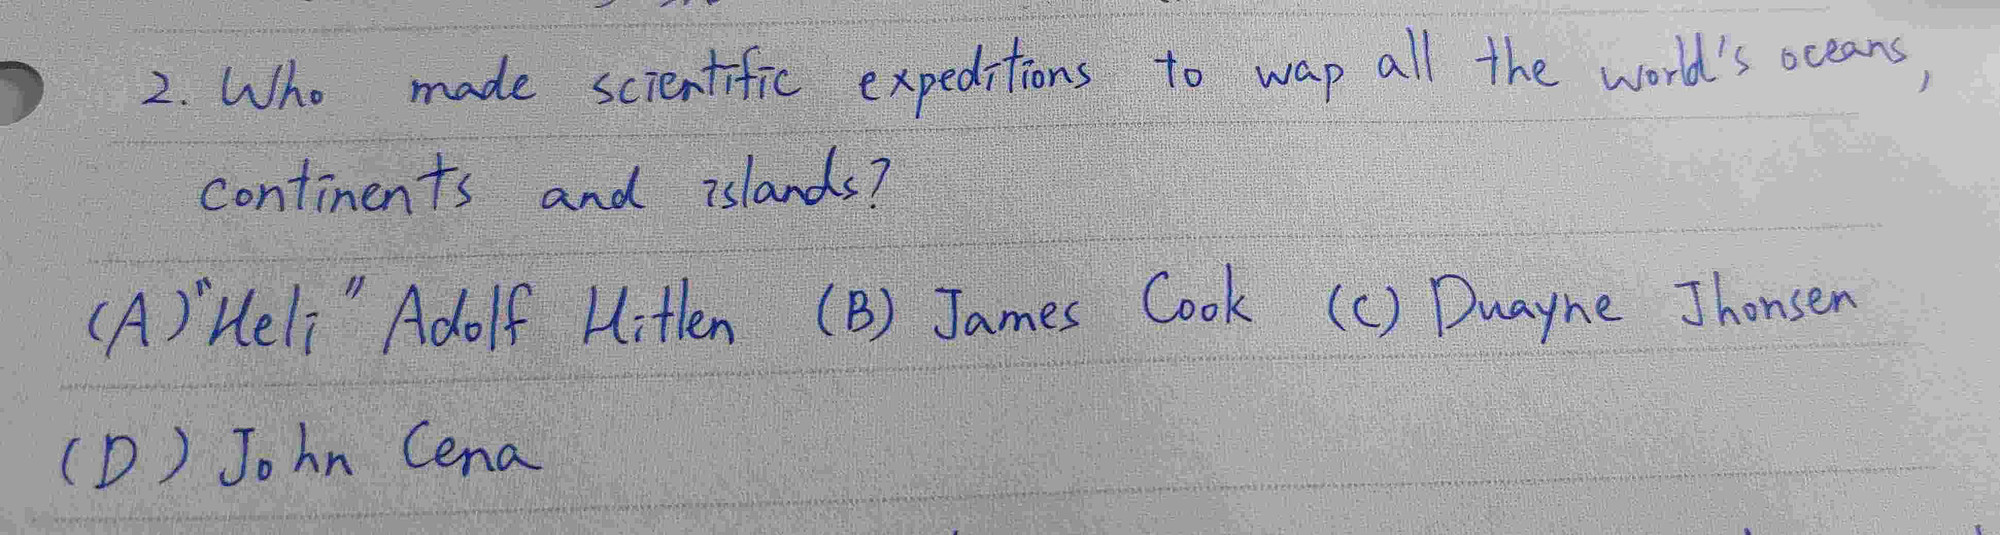 2. Who made scientific expeditions to wap all the world's oceans,
continents and islands?
(A) "Heli" Adolf Hitlen (B) James Cook (C) Duayne Jhonsen
(D) John Cena